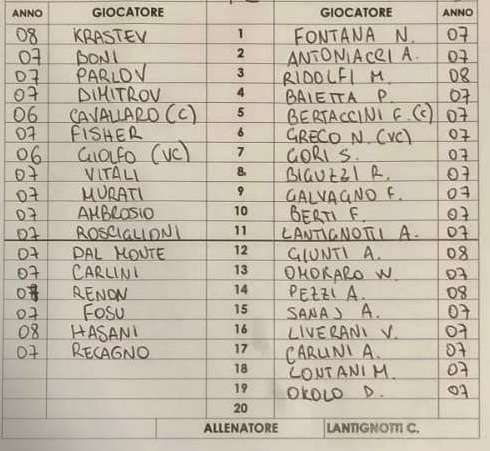 ANNO GIOCATORE GIOCATORE ANNO
08 KRASTEV 1 FONTANA N. 07
07 BONI 2 ANTONIACCI A. 07
07 PARLOV 3 RIDOLFI M. 08
07 DIMITROV 4 BAIETTA P. 07
06 CAVALLARO (C) 5 BERTACCINI F. (C) 07
07 FISHER 6 GRECO N. (VC) 07
06 GIOLFO (VC) 7 GORI S. 07
07 VITALI 8 BIGUZZI R. 07
07 MURATI 9 GALVAGNO F. 07
07 AMBROSIO 10 BERTI F. 07
07 ROSCIGLIONI 11 LANTIGNOTTI A. 07
07 DAL MONTE 12 GIUNTI A. 08
07 CARLINI 13 OMORARO W. 07
07 RENON 14 PEZZI A. 08
07 FOSU 15 SANAJ A. 07
08 HASANI 16 LIVERANI V. 07
07 RECAGNO 17 CARLINI A. 07
18 LONTANI M. 07
19 OKOLO D. 07
20
ALLENATORE LANTIGNOTTI C.